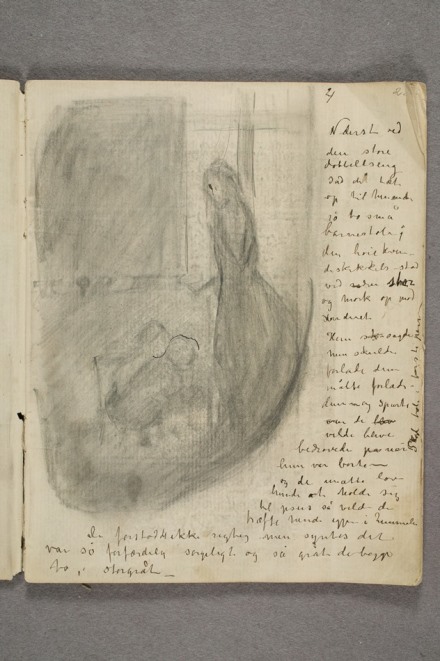 4
Nederst ved
den store
dobbeltseng
sad det tæt
op til hinanden
på to små
barnestole;
den høie kvin-
deskikkelse stod
ved siden stor
og mørk op mod
vinduet.
Hun sagde
hun skulde
forlade dem
måtte forlade
dem og spurte
om de
vilde blive
bedrøvede når
hun var borte
og de måtte lov
hende at holde sig
til Jesus så vilde de
træffe hende igjen i himmelen
De forstod ikke rigtig men syntes det
var så forfærdelig sørgeligt og så gråt de begge
to, storgråt